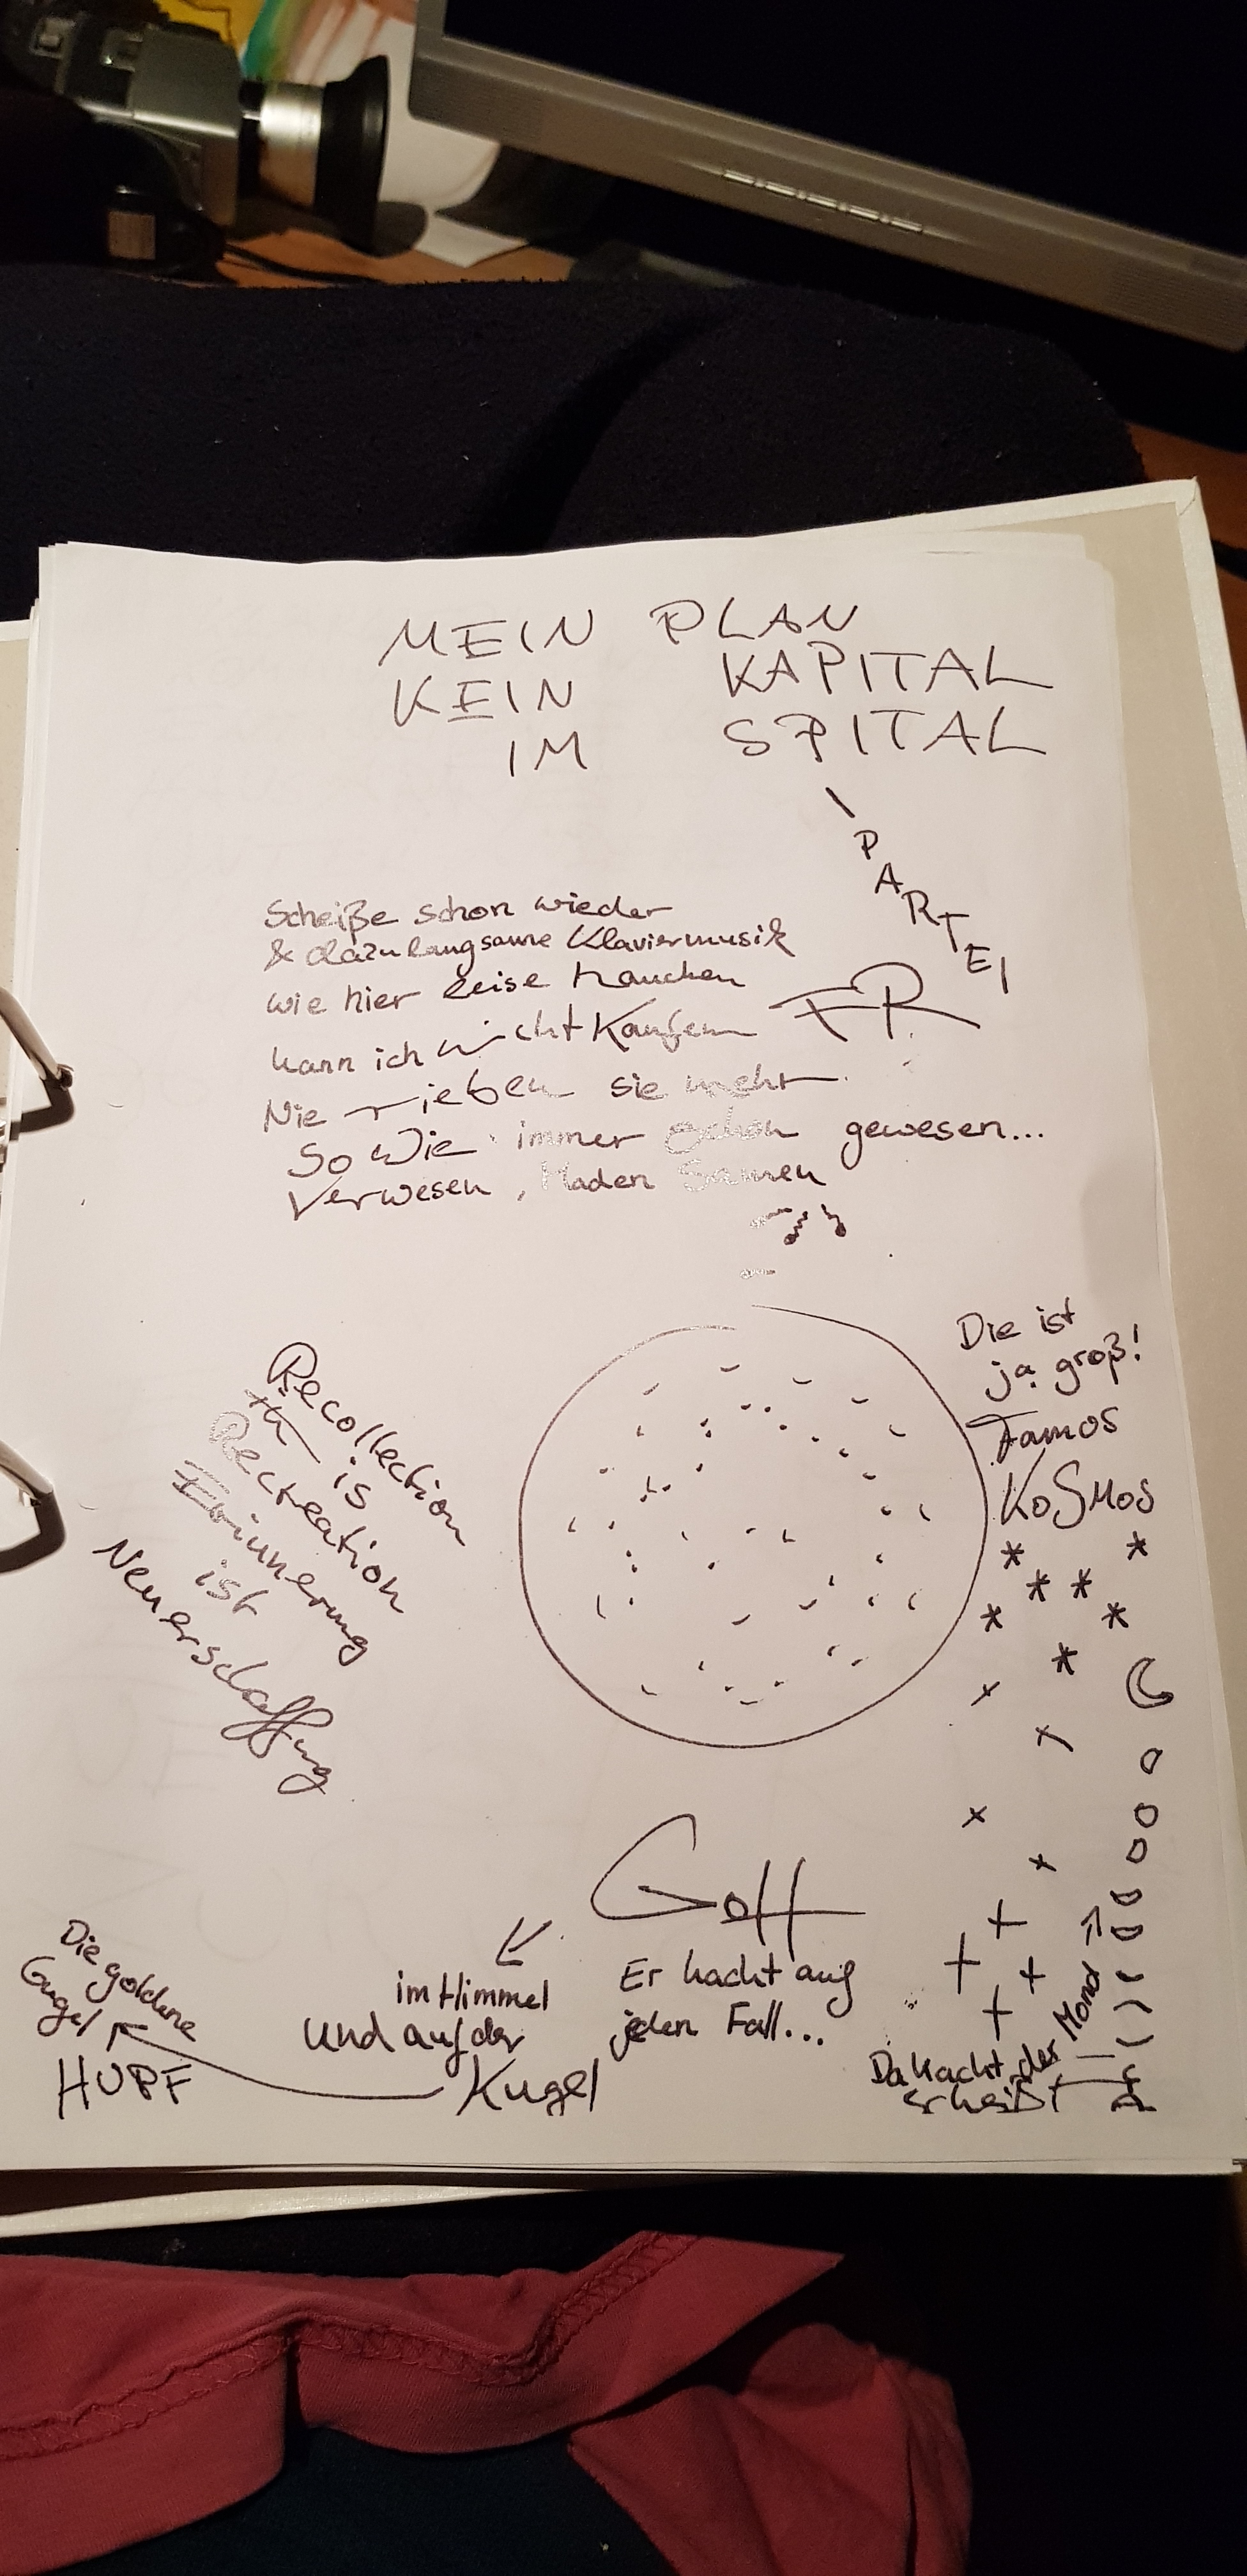 MEIN PLAN
KEIN KAPITAL
IM SPITAL
\
PARTEI
Scheiße schon wieder
& dazu langsame Klaviermusik
wie hier leise hauchen
kann ich nicht Kaufen
Nie rieben sie mehr.
So Wie immer schon gewesen...
Verwesen, Maden Samen
Die ist
ja groß!
Famos
KoSMos
Recollection
is
Recreation
Erinnerung
ist
Neuerschaffung
Gott
Er lacht auf
jeden Fall...
im Himmel
und auf der
Kugel
Die goldene
Gugel
HUPF
Da lacht der
Mond